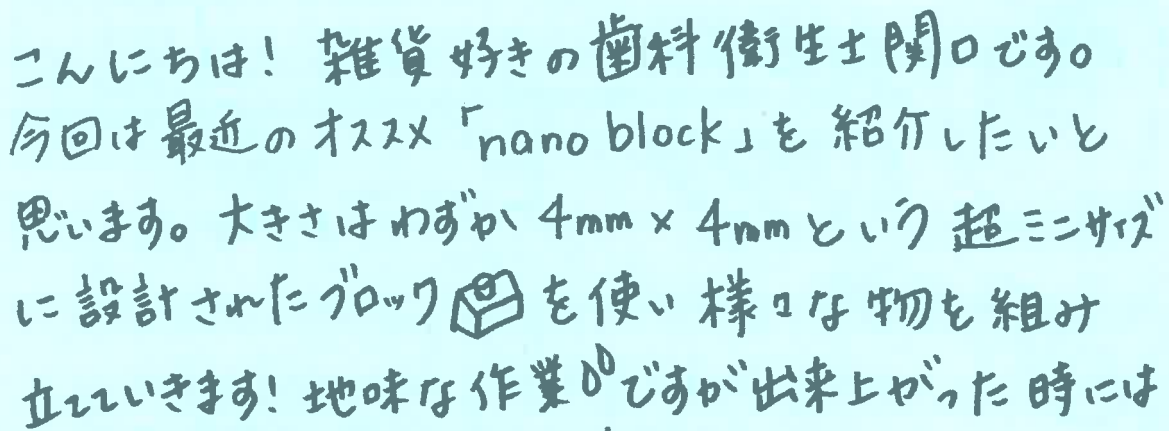 こんにちは！ 雑貨好きの歯科衛生士関口です。
今回は最近のオススメ「nano block」を紹介したいと
思います。大きさはわずか4mm×4mmという超ミニサイズ
に設計されたブロックを使い様々な物を組み
立てていきます！地味な作業ですが出来上がった時には